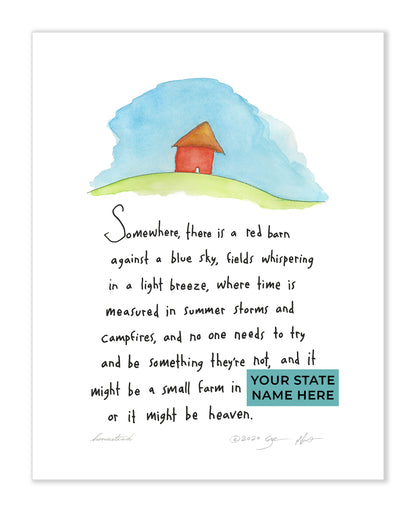 Somewhere, there is a red barn
against a blue sky, fields whispering
in a light breeze, where time is
measured in summer storms and
campfires, and no one needs to try
and be something they're not, and it
might be a small farm in YOUR STATE NAME HERE
or it might be heaven.
homestead ©2020